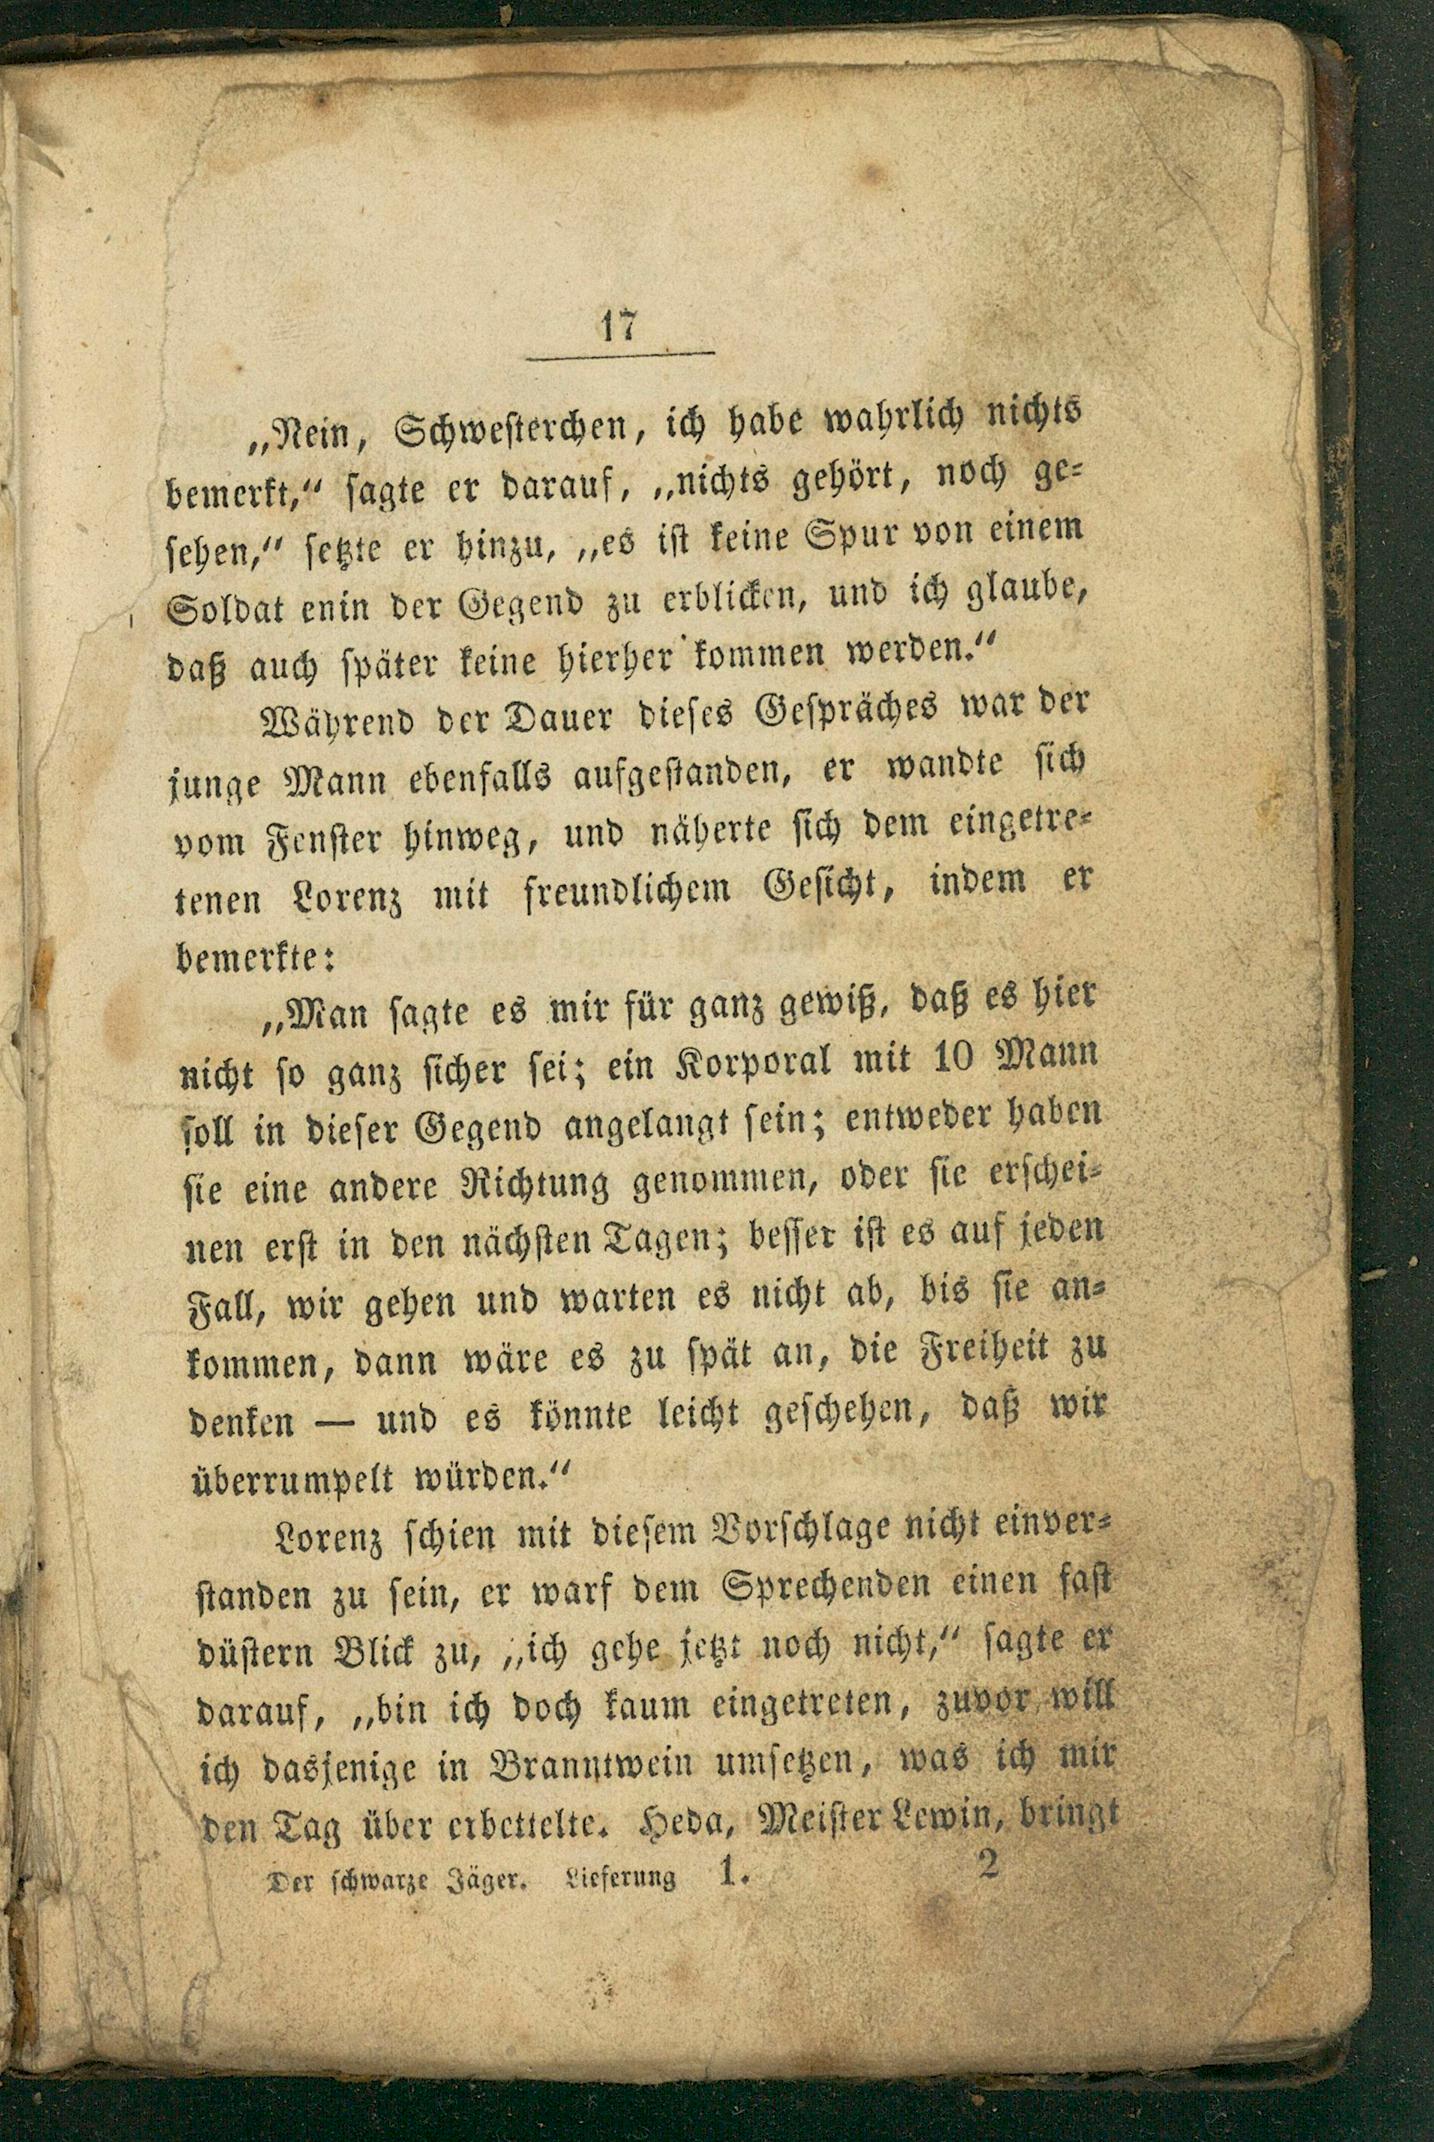 17
„Nein, Schwesterchen, ich habe wahrlich nichts
bemerkt,“ sagte er darauf, „nichts gehört, noch ge-
sehen,“ setzte er hinzu, „es ist keine Spur von einem
Soldat enin der Gegend zu erblicken, und ich glaube,
daß auch später keine hierher kommen werden.“
Während der Dauer dieses Gespräches war der
junge Mann ebenfalls aufgestanden, er wandte sich
vom Fenster hinweg, und näherte sich dem eingetre-
tenen Lorenz mit freundlichem Gesicht, indem er
bemerkte:
„Man sagte es mir für ganz gewiß, daß es hier
nicht so ganz sicher sei; ein Korporal mit 10 Mann
soll in dieser Gegend angelangt sein; entweder haben
sie eine andere Richtung genommen, oder sie erschei-
nen erst in den nächsten Tagen; besser ist es auf jeden
Fall, wir gehen und warten es nicht ab, bis sie an-
kommen, dann wäre es zu spät an, die Freiheit zu
denken — und es könnte leicht geschehen, daß wir
überrumpelt würden.“
Lorenz schien mit diesem Vorschlage nicht einver-
standen zu sein, er warf dem Sprechenden einen fast
düstern Blick zu, „ich gehe jetzt noch nicht,“ sagte er
darauf, „bin ich doch kaum eingetreten, zuvor will
ich dasjenige in Branntwein umsetzen, was ich mir
den Tag über erbettelte. Heda, Meister Lewin, bringt
Der schwarze Jäger. Lieferung 1. 2